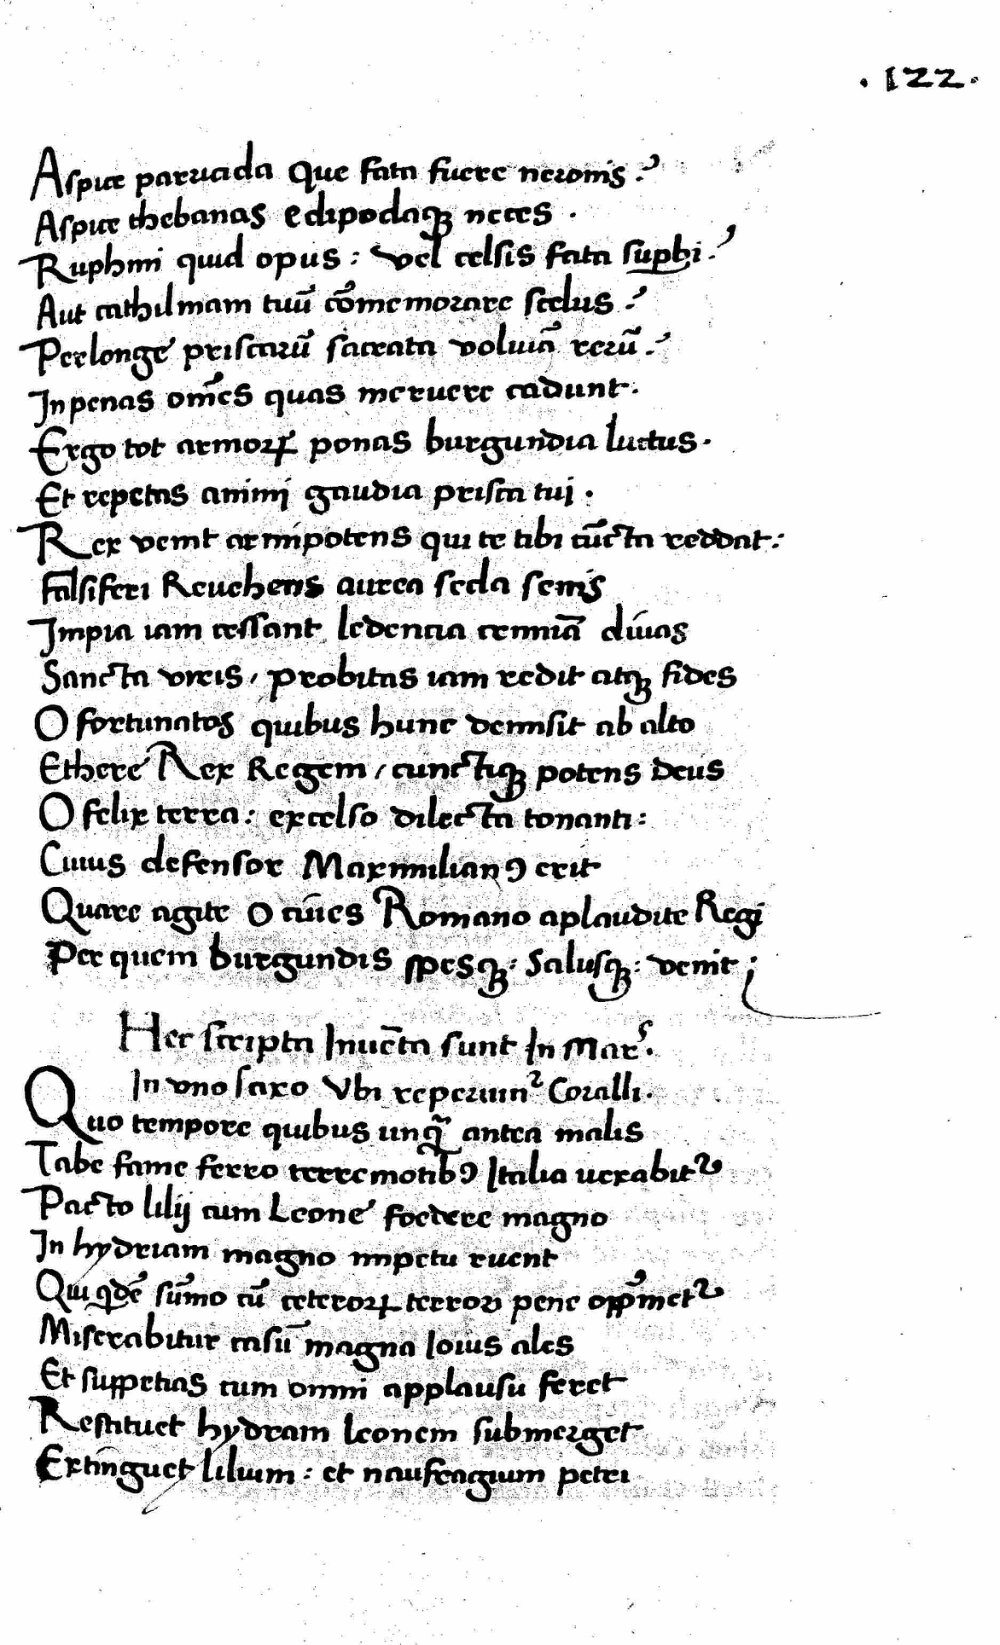 .122.
Aspice parricida Que fata fuere neronis ?
Aspice thebanas edipodaqꝫ neces .
Ruphini quid opus : vel celsis fata supbi . ?
Aut cathilinam tuū cōmemorare scelus ?
Perlonge priscarū sacrata voluiā rerū . ?
In penas om̄es quas meruere cadunt .
Ergo tot armoꝝ ponas burgundia luctus .
Et repetas animi gaudia prisca tuj .
Rex venit armipotens qui te tibi cūcta reddat :
falsiferi Reuehens aurea secla senis
Impia iam cessant ledencia
Sancta viris / probitas iam redit atqꝫ fides
O fortunatos quibus hunc demisit ab alto
Ethere Rex Regem / cunctiqꝫ potens deus
O felix terra : excelso dilecta tonanti :
Cuius defensor Maximilianꝰ erit
Quare agite O ciues Romano aplaudite Regi
Per quem burgundis spesqꝫ : Salusqꝫ : venit ;
Hec scripta Inuēta sunt In Mar .
In vno saxo Vbi reperiun² Coralli .
Quo tempore quibus unq̄ antea malis
Tabe fame ferro terremotibꝰ Italia uexabit²
Pacto lilij cum Leone foedere magno
In hydriam magno impetu ruent
Qui qdē sūmo cū ceteroꝝ terrore pene opp̄met²
Miserabitur casū magna Iouis ales
Et suppetias cum omni applausu feret
Restituet hydram leonem submerget
Extinguet lilium : et naufragium petri